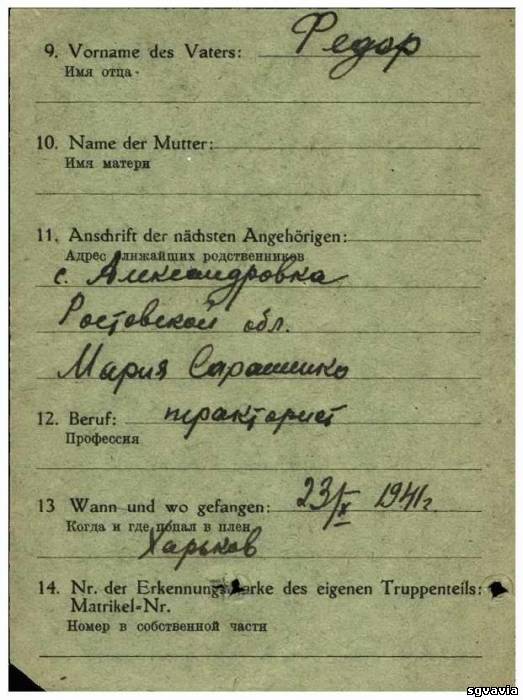 9. Vorname des Vaters: Федор
Имя отца
10. Name der Mutter:
Имя матери
11. Anschrift der nächsten Angehörigen:
Адрес ближайших родственников
с. Александровка
Ростовской обл.
Мария Сарашико
12. Beruf: тракторист
Профессия
13 Wann und wo gefangen: 23/X 1941г.
Когда и где попал в плен
Харьков
14. Nr. der Erkennungsmarke des eigenen Truppenteils:
Matrikel-Nr.
Номер в собственной части
sgvavia